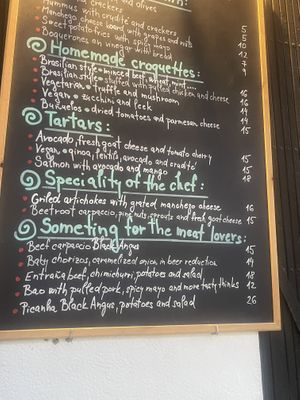 and olives
crackers
Hummus with crudité and crackers 5
Manchego cheese board with grapes and nuts 10
Sweet potato fries with spicy mayo 7
Boquerones en vinagre with bread 9
Homemade croquettes:
Brasilian style • minced beef, wheat, mint....
Brasilian style • stuffed with pulled chicken and cheese 16
Vegetarian • truffle and mushroom 16
Vegan • zucchini and leek 14
Buñuelos • dried tomatoes and parmesan cheese 14
Tartars:
Avocado, fresh goat cheese and tomato cherry 15
Vegan • quinoa, lentils, avocado and crudité 15
Salmon with avocado and mango 18
Speciality of the chef:
Grilled artichokes with grated manchego cheese 16
Beetroot carpaccio, pine nuts, sprouts and fresh goat cheese 15
Someting for the meat lovers:
Beef carpaccio Black Angus 15
Baby chorizos, caramelized onion in beer reduction 14
Entraña beef, chimichurri, potatoes and salad 18
Bao with pulled pork, spicy mayo and more tasty thinks 12
Picanha Black Angus, potatoes and salad 26